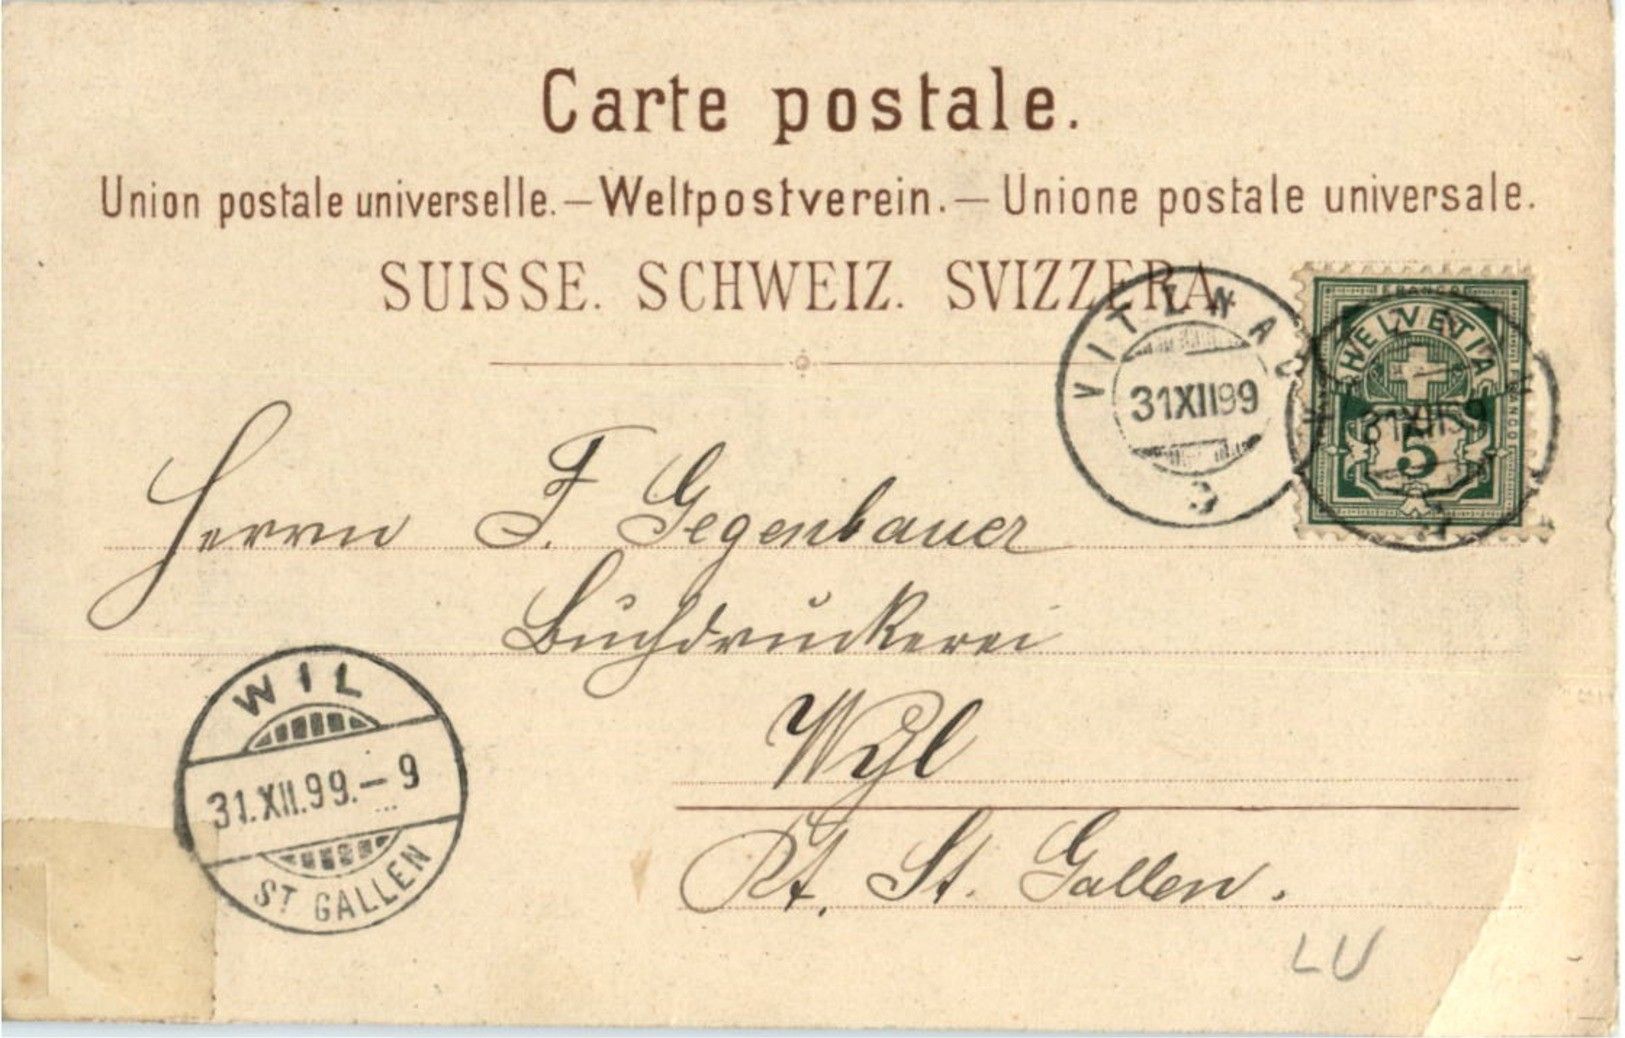 Carte postale.
Union postale universelle. — Weltpostverein. — Unione postale universale.
SUISSE. SCHWEIZ. SVIZZERA.
VITZNAU
31XII99
FRANCO
HELVETIA
5
31XII99
Herrn F. Gegenbauer
Buchdruckerei
WIL
31.XII.99.–9
ST GALLEN
Wyl
Kt. St. Gallen.
LU